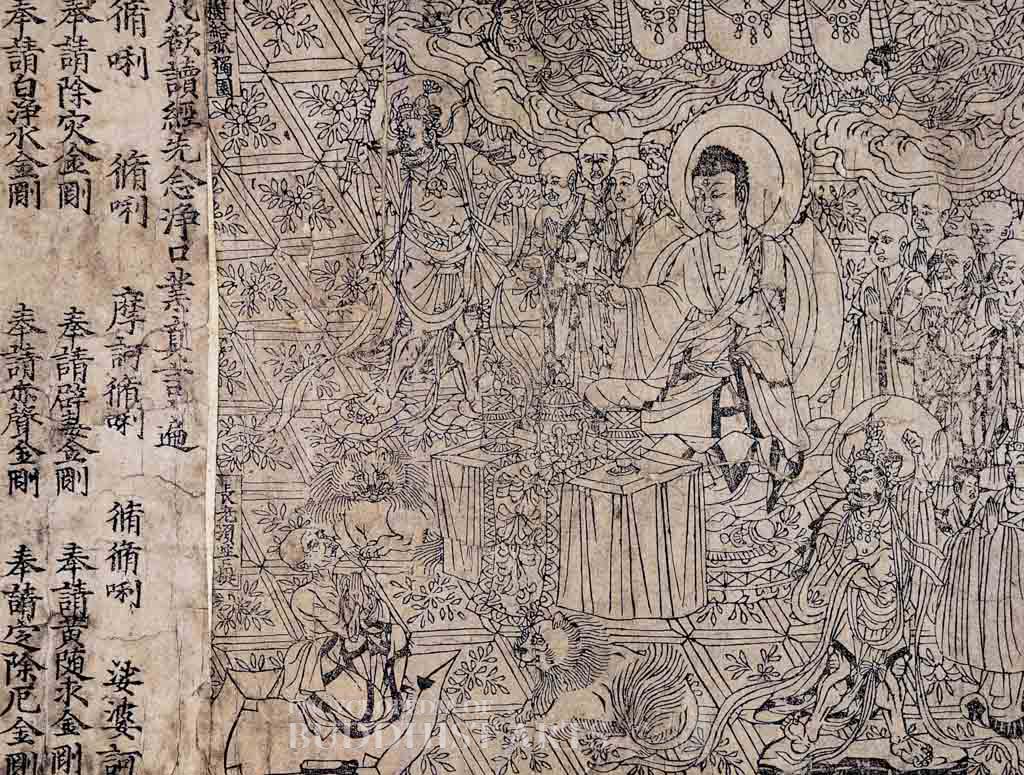 樹給孤獨園
長老須菩提
凡欲讀經先念淨口業真言一遍
脩唎 脩唎 摩訶脩唎 脩脩唎 娑婆訶
奉請除灾金剛 奉請辟毒金剛 奉請黃随求金剛
奉請白淨水金剛 奉請赤聲金剛 奉請定除厄金剛
ENCYCLOPEDIA OF
BUDDHIST ART